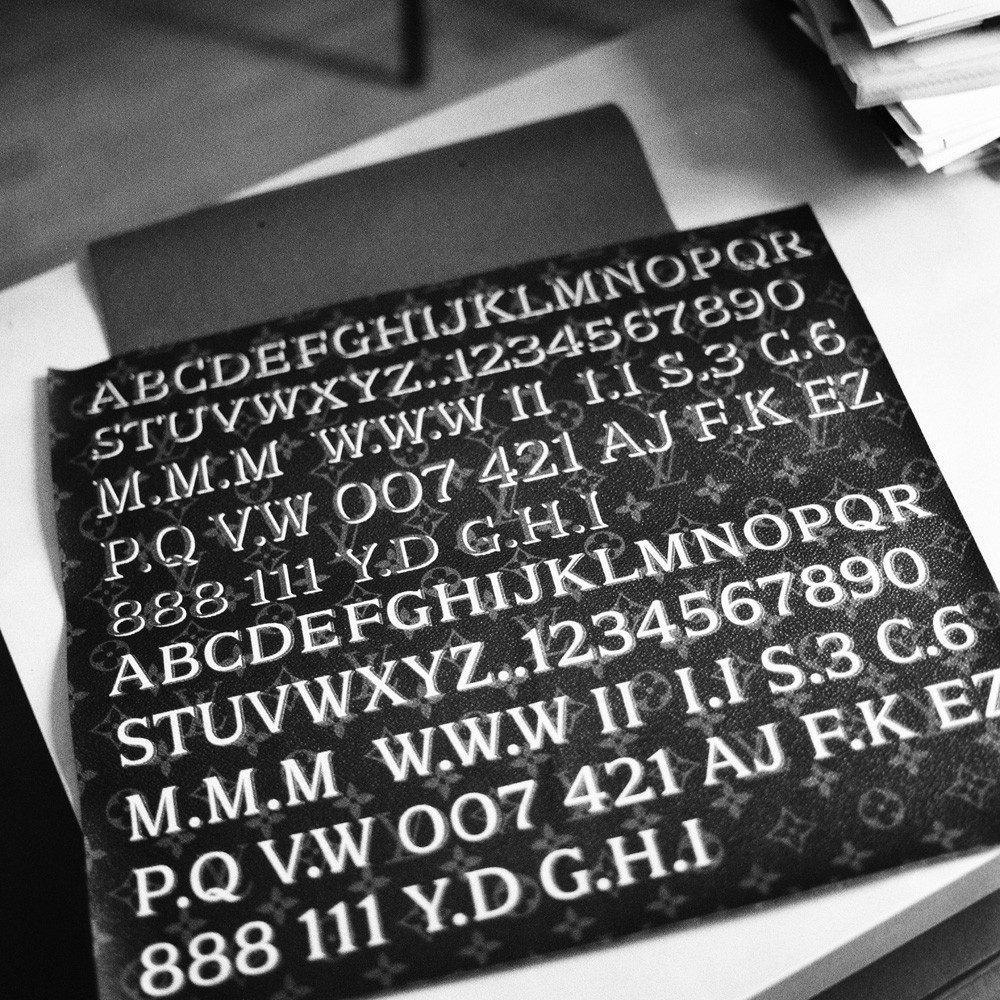 ABCDEFGHIJKLMNOPQR
STUVWXYZ..1234567890
M.M.M W.W.W II I.I S.3 C.6
P.Q V.W 007 421 AJ F.K EZ
888 111 Y.D G.H.I
ABCDEFGHIJKLMNOPQR
STUVWXYZ..1234567890
M.M.M W.W.W II I.I S.3 C.6
P.Q V.W 007 421 AJ F.K EZ
888 111 Y.D G.H.I